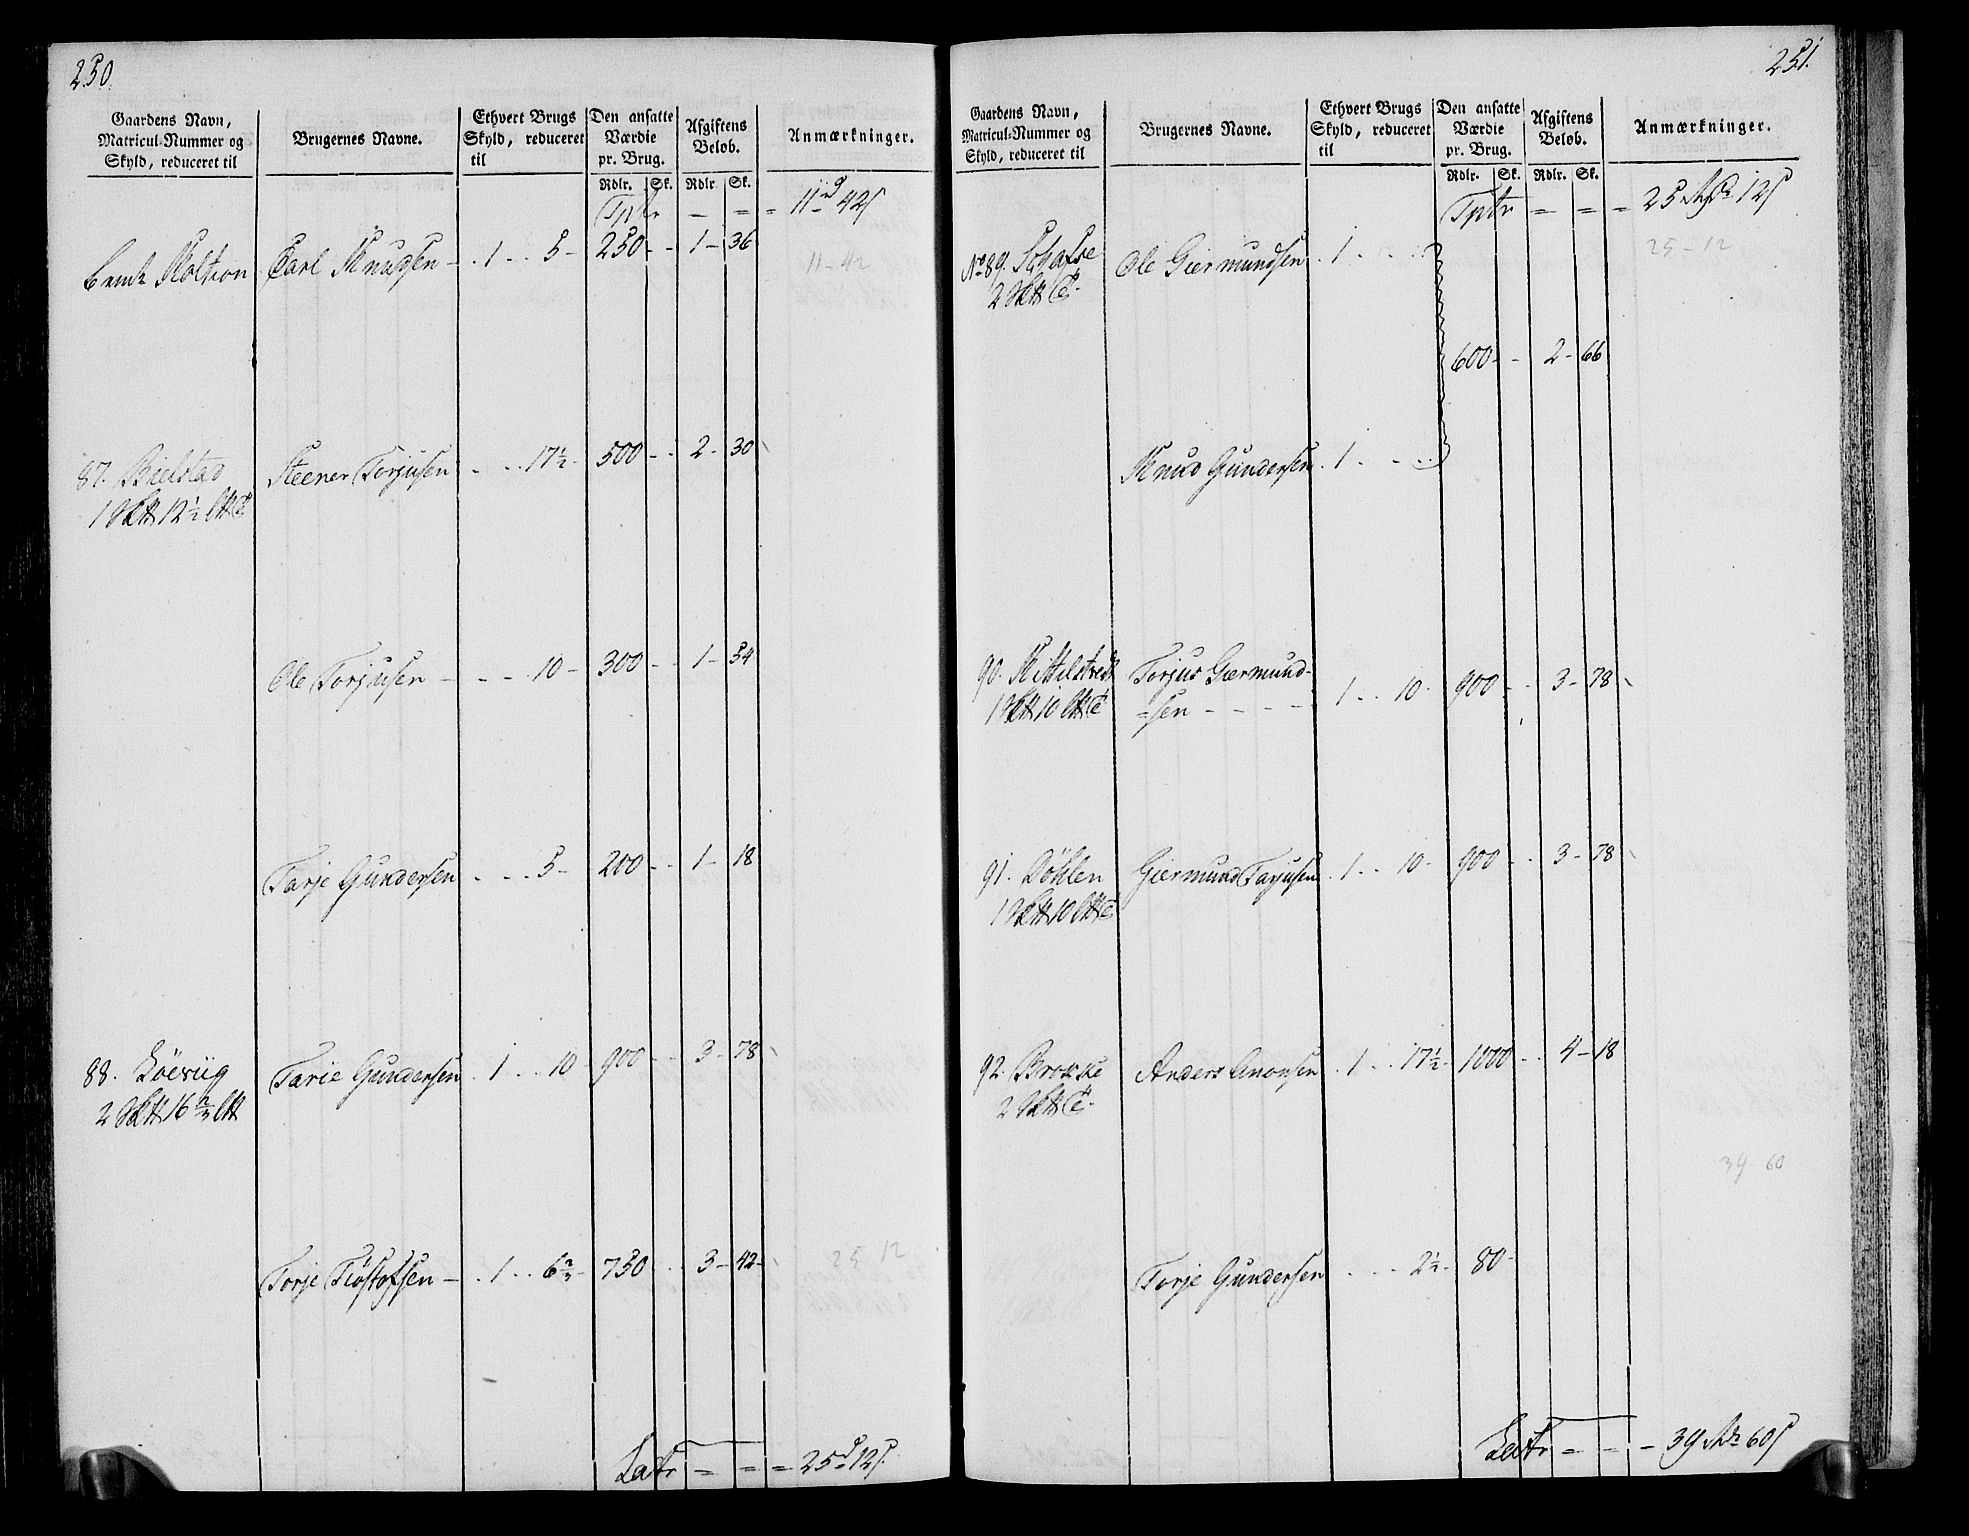 250.
Gaardens Navn, Matricul-Nummer og Skyld, reduceret til
Brugernes Navne.
Ethvert Brugs Skyld, reduceret til
Den ansatte Værdie pr. Brug.
Afgiftens Beløb.
Anmærkninger.
Rdlr. Sk. Rdlr. Sk.
Tptr - = = 11 42
Carl Knudsen - 1 5 - 250 - 1 - 36
11-42
87. Bielstad Steener Torjusen 17½ - 500 - 2 - 30
1 12½
Ole Torjusen - 10 - 300 - 1 - 54
Tarje Gundersen 5 - 200 - 1 - 18
88. Tarje Gundersen 1 10 - 900 - 3 - 78
2 16⅔
Torje Tiøstofsen - 1 6⅔ - 750 3 - 42 -
25 12
Latr = = = 25 12
251.
Gaardens Navn, Matricul-Nummer og Skyld, reduceret til
Brugernes Navne.
Ethvert Brugs Skyld, reduceret til
Den ansatte Værdie pr. Brug.
Afgiftens Beløb.
Anmærkninger.
Rdlr. Sk. Rdlr. Sk.
Tptr = = = 25 12
25-12
No 89. Ole Giermundsen 1
2
600 - - 2 - 66
Knud Gundersen 1
90. Torjus Giermund-
1 10 =sen - - - - 1 10 - 900 - 3 - 78
91. Døhlen Giermund Torjusen 1 10 - 900 - 3 - 78
1 10
92. Brokke Anders Amonsen 1 17½ - 1000 - 4 - 18
2
39-60
Torje Gundersen 2½ - 80 -
Latr = = = 39 60